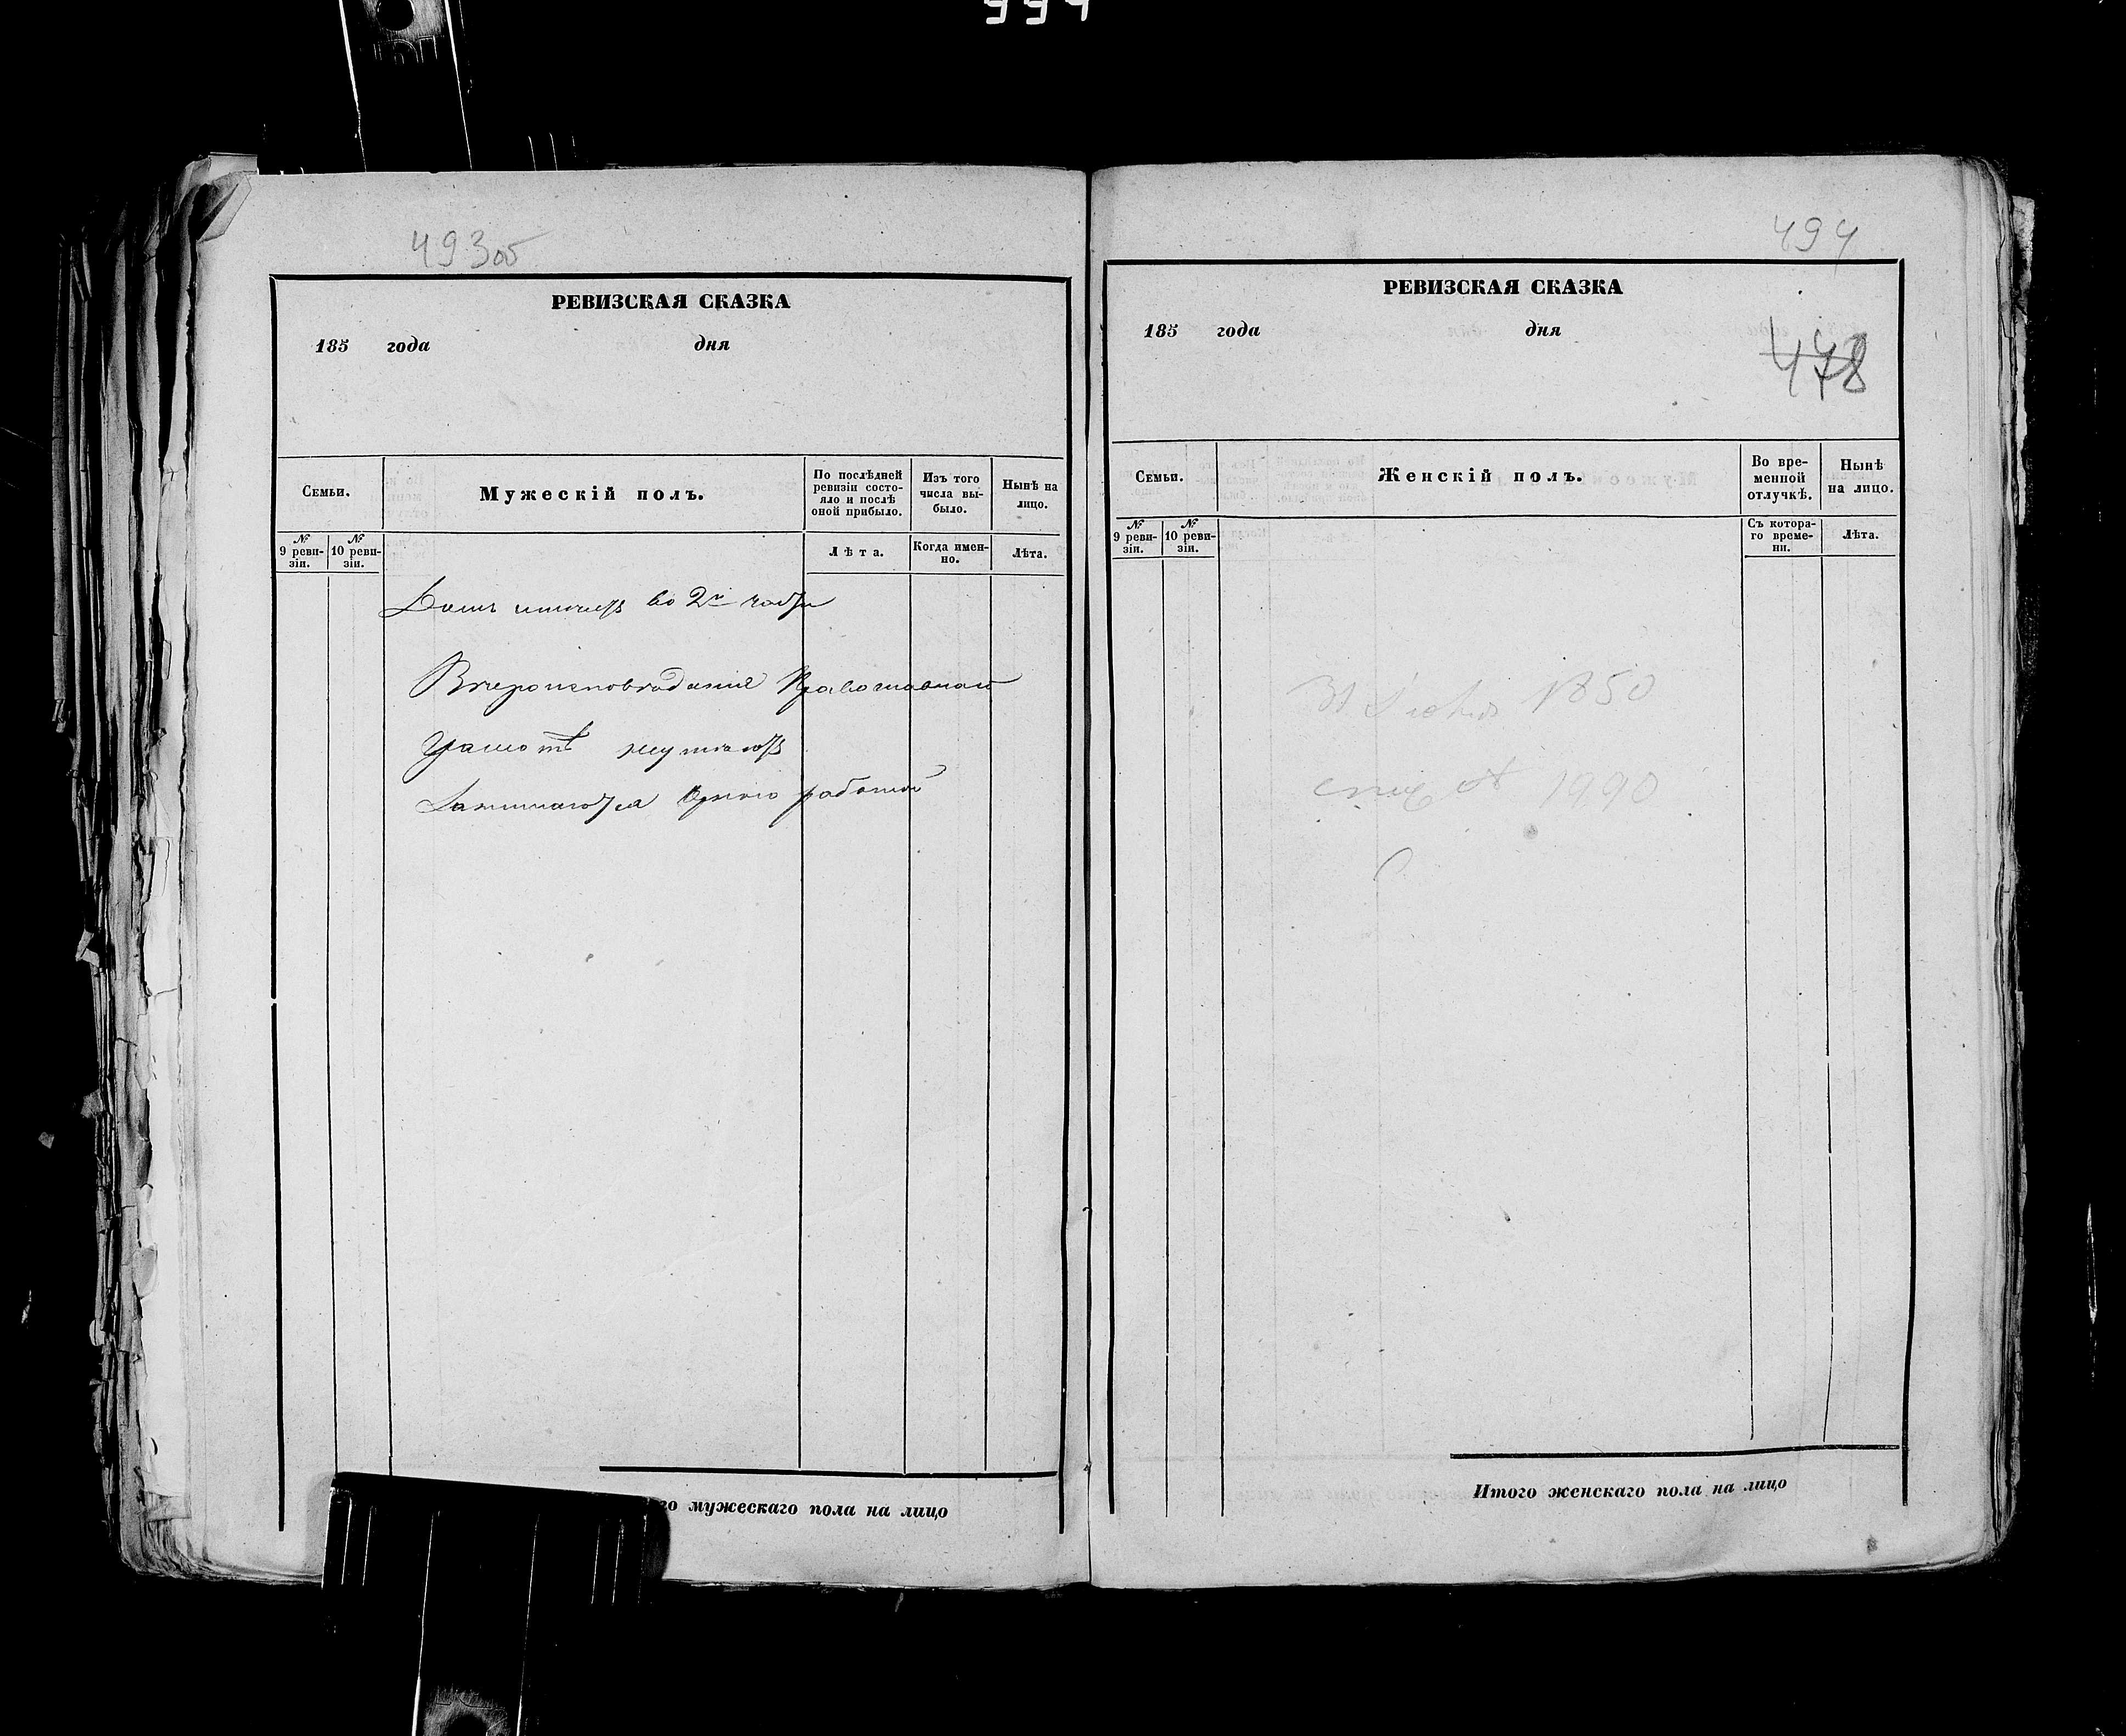 994
493 об
РЕВИЗСКАЯ СКАЗКА
185 года дня
Семьи.
Мужескій полъ.
По послѣдней ревизіи состо-
яло и послѣ оной прибыло.
Изъ того числа вы-
было.
Нынѣ на лицо.
№ 9 реви-
зіи.
№ 10 реви-
зіи.
Лѣта.
Когда имен-
но.
Лѣта.
Домъ имѣютъ во 2й части
Вѣроисповѣданія Православнаго
Грамотѣ неумѣютъ
Занимаются Чорною работою
го мужескаго пола на лицо
494
РЕВИЗСКАЯ СКАЗКА
185 года дня
478
Семьи.
Женскій полъ.
Во вре-
менной отлучкѣ.
Нынѣ на лицо.
№ 9 реви-
зіи.
№ 10 реви-
зіи.
Съ котора-
го време-
ни.
Лѣта.
1850
1990
Итого женскаго пола на лицо